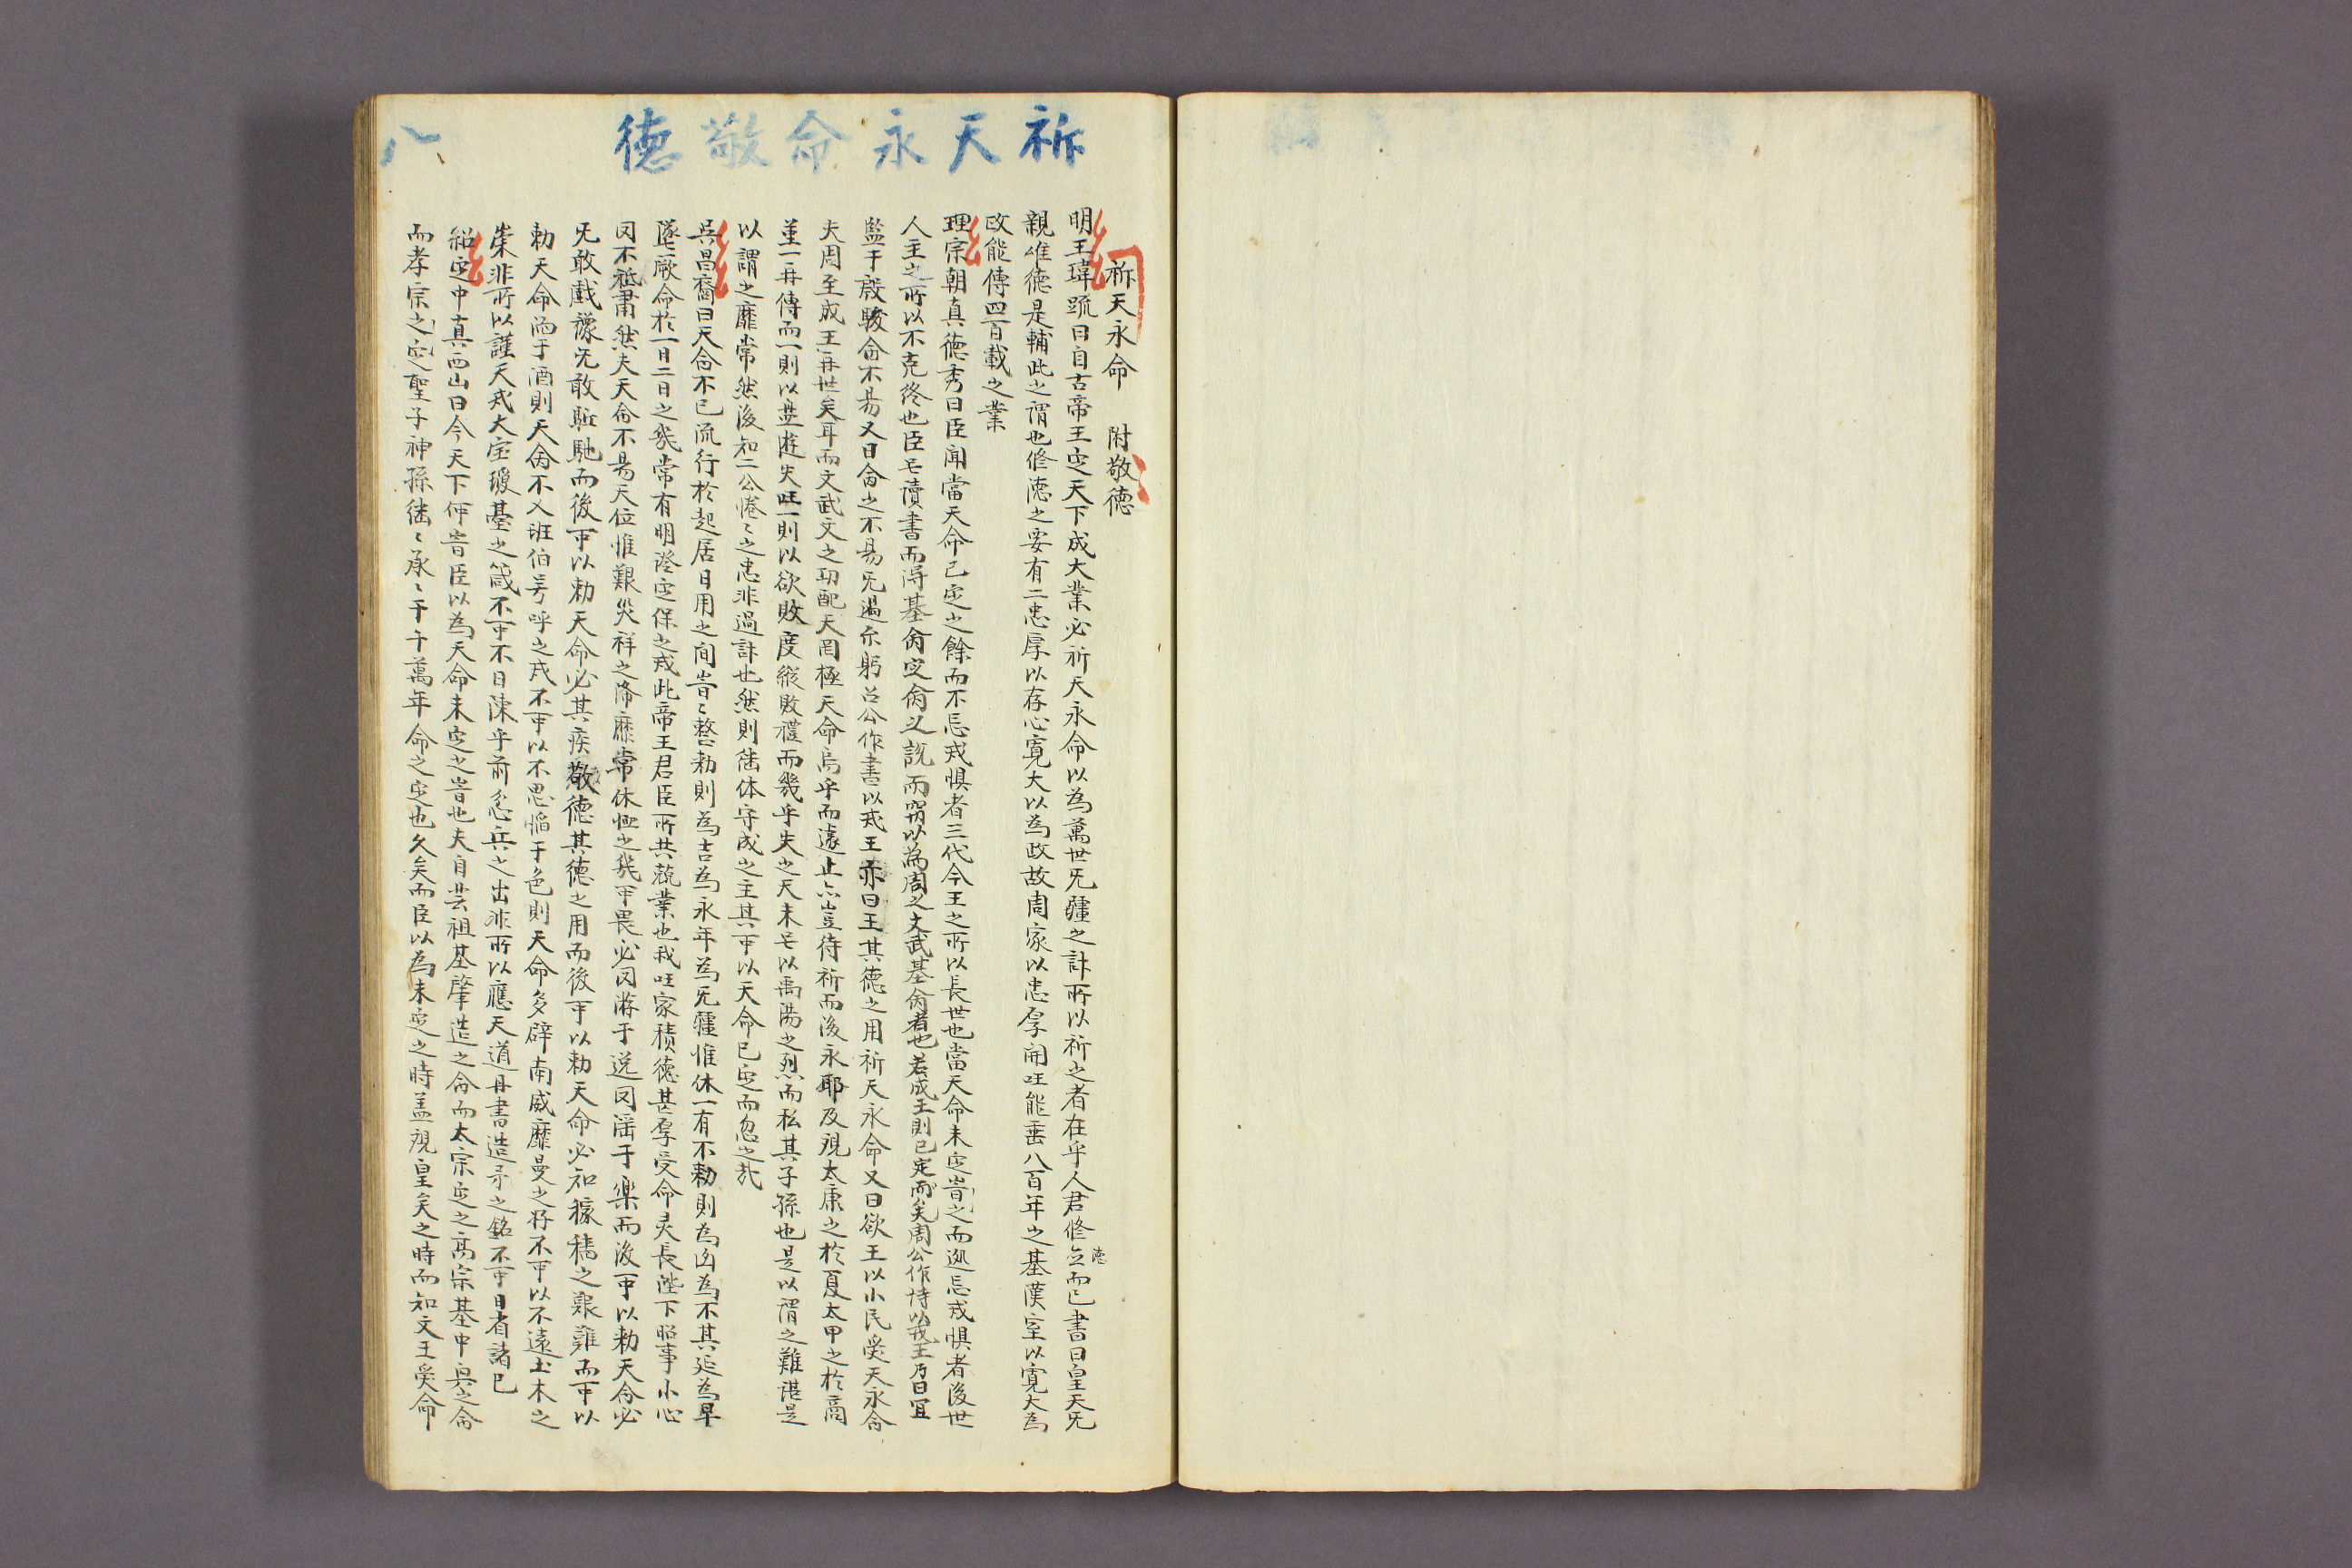 祈天永命敬德
八
祈天永命 附敬德
明王瑋疏曰自古帝王定天下成大業必祈天永命以為萬世无疆之計所以祈之者在乎人君修德而已書曰皇天无
親惟德是輔此之謂也修德之要有二忠厚以存心寬大以為政故周家以忠厚開国能垂八百年之基漢室以寬大為
政能傳四百載之業
理宗朝真德秀曰臣聞當天命已定之餘而不忘戒懼者三代令王之所以長世也當天命未定旹之而遽忘戒懼者後世
人主之所以不克終也臣甞讀書而得基命定命之說而窃以為周之文武基命者也若成王則已定而矣周公作詩以戒王乃曰宜
監于殷駿命不易又曰命之不易无遏尓躬召公作書以戒王亦曰王其德之用祈天永命又曰欲王以小民受天永命
夫周至成王再世矣耳而文武文之功配天罔極天命烏乎而遽止亦豈待祈而後永耶及觀太康之於夏太甲之於商
堇一再傳而一則以盘遊失国一則以欲敗度縱敗禮而幾乎失之天未甞以禹湯之烈而私其子孫也是以謂之難諶是
以謂之靡常然後知二公惓〻之忠非過計也然則継体守成之主其可以天命已定而忽之哉
吳昌裔曰天命不已流行於起居日用之间旹〻整勅則為吉為永年為无疆惟休一有不勅則為凶為不其延為早
墜厥命於一日二日之幾常有明登定保之戒此帝王君臣所共兢業也我国家積德甚厚受命灵長陛下昭事小心
罔不祗肅然夫天命不易天位惟艱災祥之降靡常休恒之幾可畏必罔游于逸罔淫于樂而後可以勅天命必
无敢戲豫无敢馳驅而後可以勅天命必其疾敬德其德之用而後可以勅天命必知稼穡之艱難而可以
勅天命湎于酒則天命不乂班伯号呼之戒不可以不思慆于色則天命多辟南威靡曼之好不可以不遠土木之
崇非所以謹天戒大宝瓊基之箴不可不日陳乎前忿兵之出非所以應天道丹書造矛之銘不可日省諸己
紹定中真西山曰今天下何旹臣以為天命未定之旹也夫自芸祖基肇造之命而太宗定之高宗基中興之命
而孝宗之定聖子神孫継〻承〻于千萬年命之定也久矣而臣以為未定之時盖視皇矣之時而知文王受命